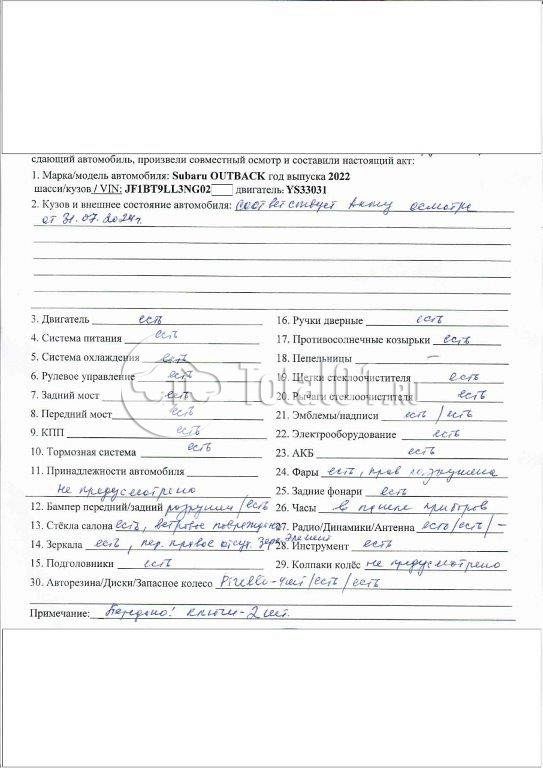 сдающий автомобиль, произвели совместный осмотр и составили настоящий акт:
1. Марка/модель автомобиля: Subaru OUTBACK год выпуска 2022
шасси/кузов / VIN: JF1BT9LL3NG02 двигатель: YS33031
2. Кузов и внешнее состояние автомобиля: соответствует Акту осмотра
от 31.07.2024г.
3. Двигатель есть
4. Система питания есть
5. Система охлаждения есть
6. Рулевое управление есть
7. Задний мост есть
8. Передний мост есть
9. КПП есть
10. Тормозная система есть
11. Принадлежности автомобиля
не предусмотрено
12. Бампер передний/задний разрушен/есть
13. Стёкла салона есть, ветровое повреждено
14. Зеркала есть, пер. правое отсут. зерк. элемент
15. Подголовники есть
16. Ручки дверные есть
17. Противосолнечные козырьки есть
18. Пепельницы –
19. Щетки стеклоочистителя есть
20. Рычаги стеклоочистителя есть
21. Эмблемы/надписи есть /есть
22. Электрооборудование есть
23. АКБ есть
24. Фары есть, прав разрушена
25. Задние фонари есть
26. Часы в панели приборов
27. Радио/Динамики/Антенна есть/есть/–
28. Инструмент есть
29. Колпаки колёс не предусмотрено
30. Авторезина/Диски/Запасное колесо Pirelli-4шт/есть/есть
Примечание: Передано! ключи-2шт.
Total01.ru